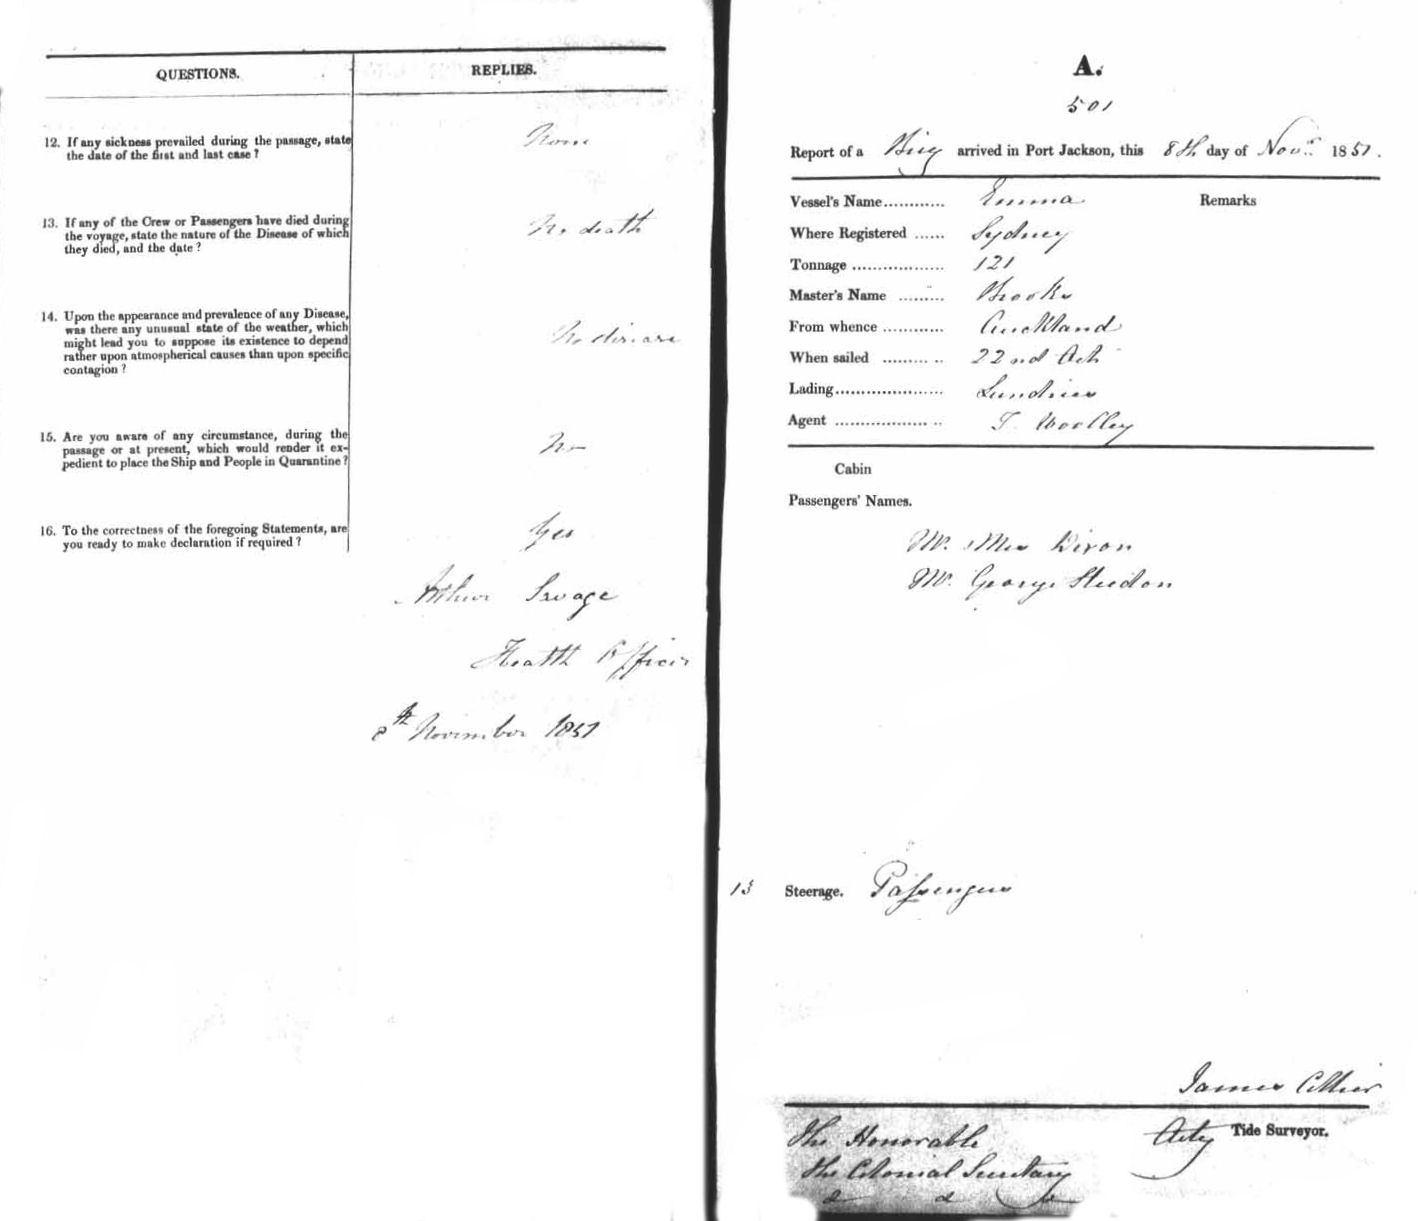 QUESTIONS.
REPLIES.
12. If any sickness prevailed during the passage, state
the date of the first and last case ?
None
13. If any of the Crew or Passengers have died during
the voyage, state the nature of the Disease of which
they died, and the date ?
No death
14. Upon the appearance and prevalence of any Disease,
was there any unusual state of the weather, which
might lead you to suppose its existence to depend
rather upon atmospherical causes than upon specific
contagion ?
No disease
15. Are you aware of any circumstance, during the
passage or at present, which would render it ex-
pedient to place the Ship and People in Quarantine ?
No
16. To the correctness of the foregoing Statements, are
you ready to make declaration if required ?
Yes
Arthur Savage
Health Officer
8th November 1851
A.
501
Report of a Brig arrived in Port Jackson, this 8th day of Novr. 1851.
Vessel's Name............ Emma Remarks
Where Registered ...... Sydney
Tonnage .................. 121
Master's Name ......... Brooks
From whence ............ Auckland
When sailed ......... .. 22nd Oct
Lading..................... Sundries
Agent .................. .. T. Woolley
Cabin
Passengers' Names.
Mr. & Mrs Dixon
Mr. George
13 Steerage. Passengers
James Collier
Actg Tide Surveyor.
The Honorable
the Colonial Secretary